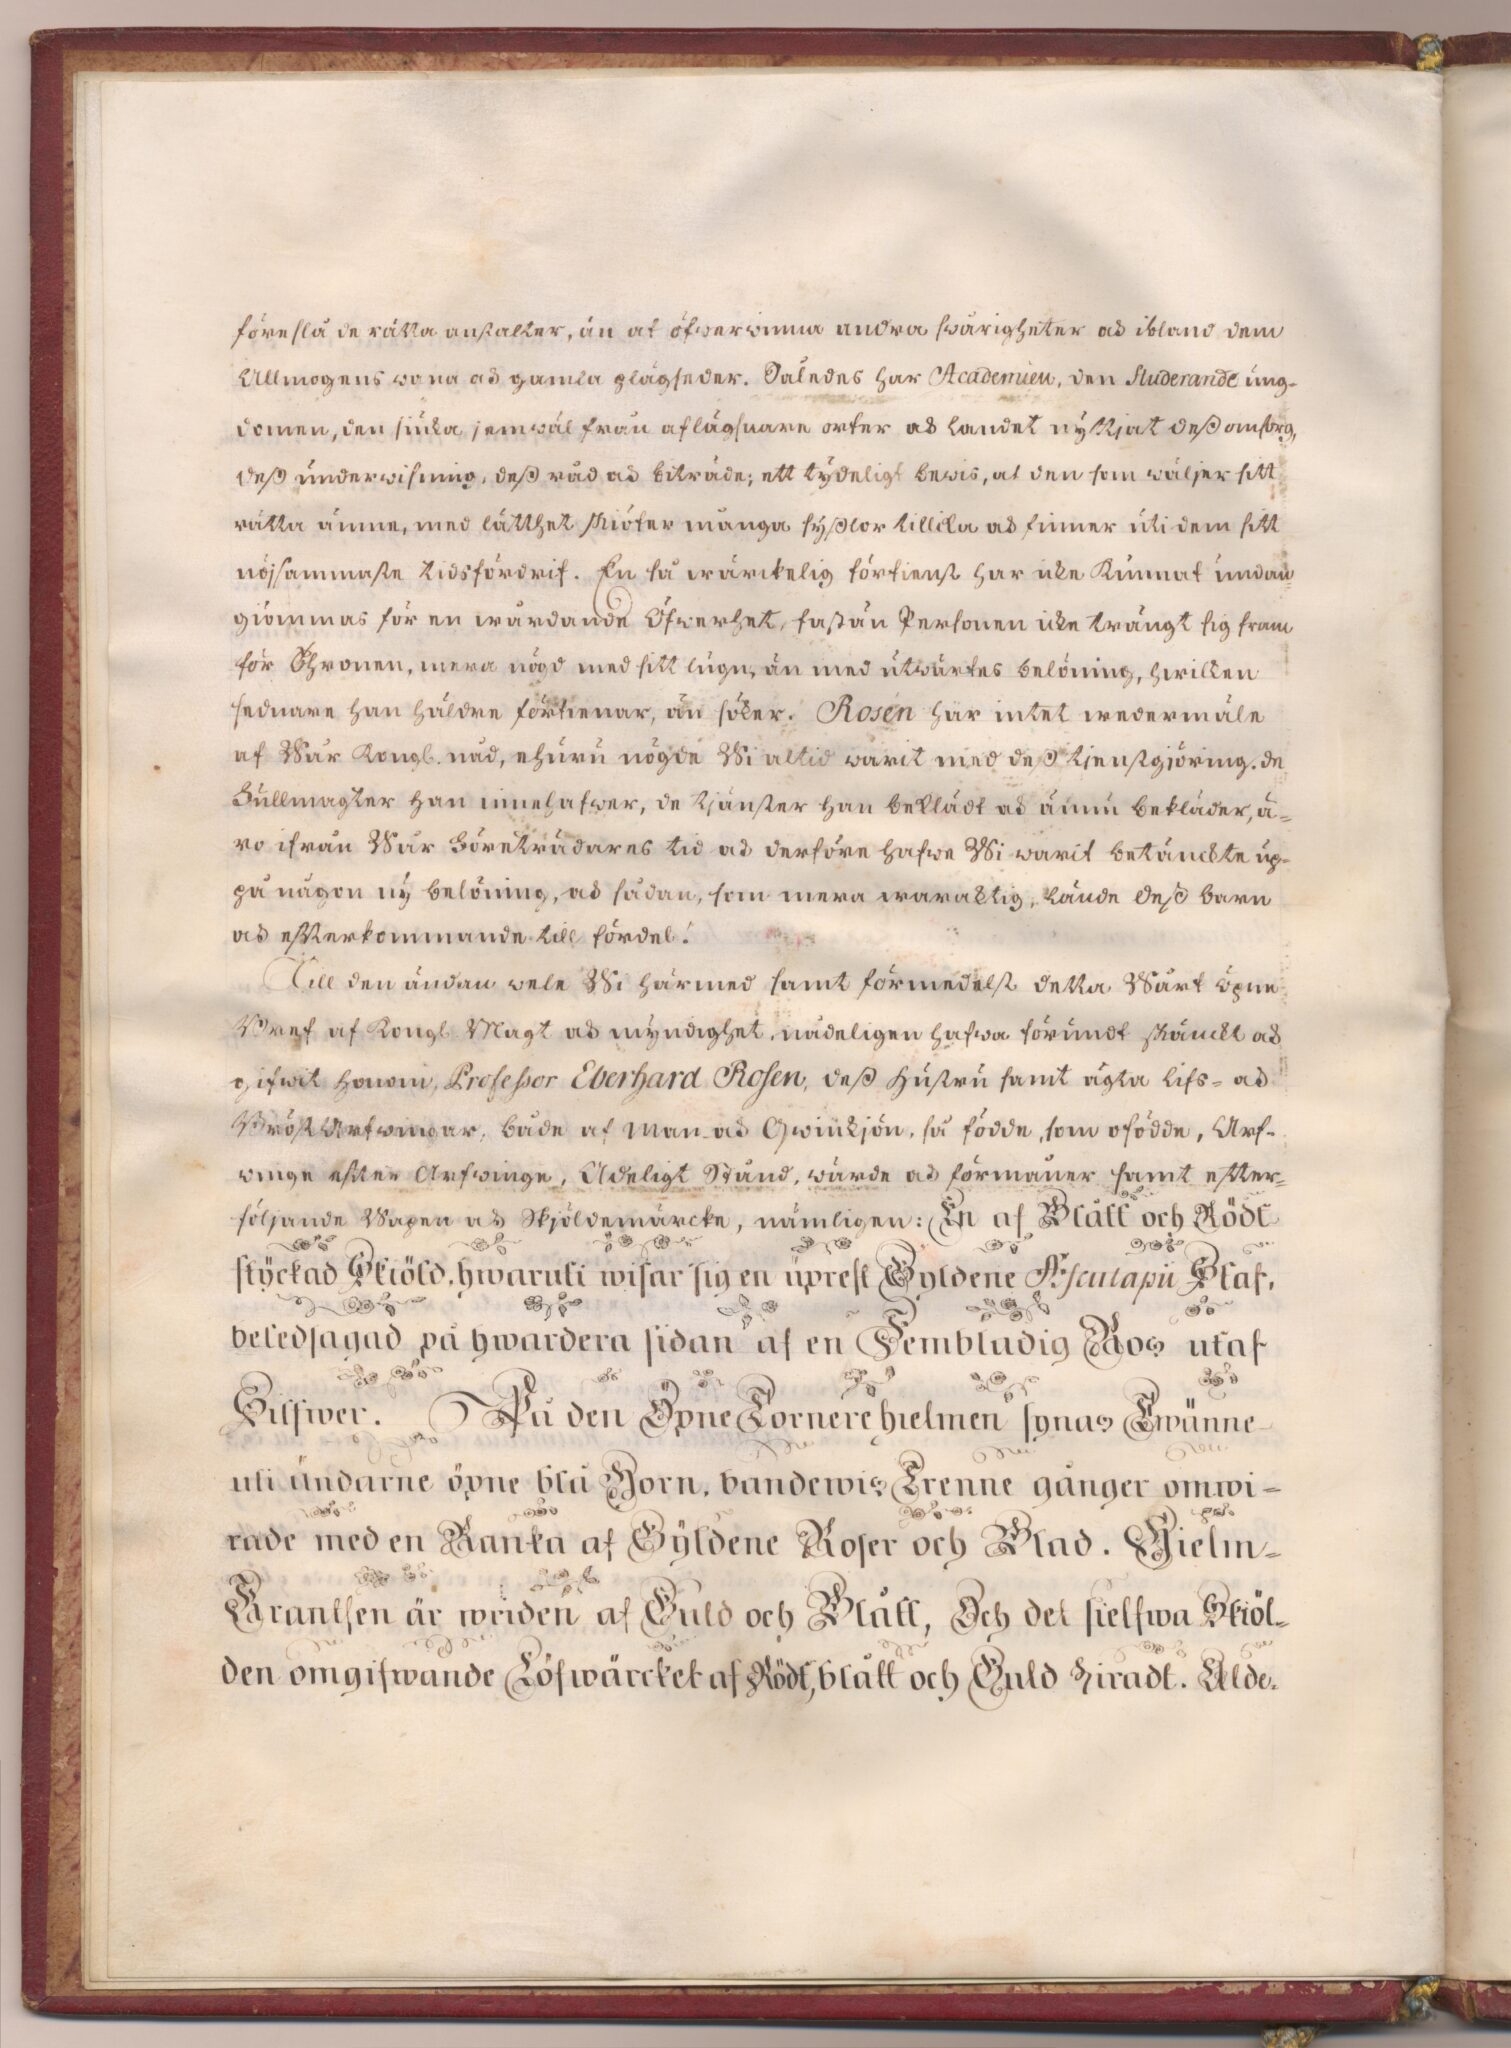 föreslå de rätta anstalter, än at öfwerwinna andra swårigheter och ibland dem
Allmogens wana och gamla plägseder. Således har Academien, den Studerande ung-
domen, den siuka jemwäl från aflägsnare orter och Landet nyttjat deß omsorg,
deß underwisning, deß råd och biträde; ett tydeligt bewis, at den som wäljer sitt
rätta ämne, med lätthet skiöter många syßlor tillika och finner uti dem sitt
nöjsammaste tidsfördrif. En så wärckelig förtienst har icke kunnat undan-
giömmas för en wårdande Öfwerhet, fastän Personen icke trängt sig fram
för Thronen, mera nögd med sitt lugn, än med utwärtes belöning, hwilken
sednare han häldre förtienar, än söker. Rosén har intet wedermäle
af Wår Kongl. nåd, ehuru nögde Wi altid warit med deß tjenstgjöring. de
Fullmagter han innehafwer, de tjänster han beklädt och ännu bekläder, ä-
ro ifrån Wår Företrädares tid och derföre hafwe Wi warit betänckte up-
på någon ny belöning, och sådan, som mera waraktig, lände deß barn
och efterkommande till fördel.
Till den ändan wele Wi härmed samt förmedelst detta Wårt öpne
Bref af Kongl. Magt och myndighet, nådeligen hafwa förundt skänckt och
gifwit honom, Professor Eberhard Rosen, deß Hustru samt ägta Lifs- och
Bröst Arfwingar, både af Man- och Qwinkjön, så födde, som ofödde, Arf-
winge efter Arfwinge, Adeligt Stånd, wärde och förmåner samt efter-
följande Wapen och Skjöldemärcke, nämligen: En af Blått och Rödt
styckad Skiöld, hwaruti wisar sig en uprest Gyldene Æsculapii Staf,
beledsagad på hwardera sidan af en Fembladig Ros utaf
Silfwer. På den Öpne Tornerehielmen synas Twünne
uti ündarne öpne blå Horn, bandewis Trenne gånger omwi-
rade med en Ranka af Gÿldene Roser och Blad. Hielm-
Krantsen är wriden af Guld och Blått, Och det sielfwa Skiöl-
den omgifwande Löfwärcket af Rödt, blått och Guld ziradt. Alde-